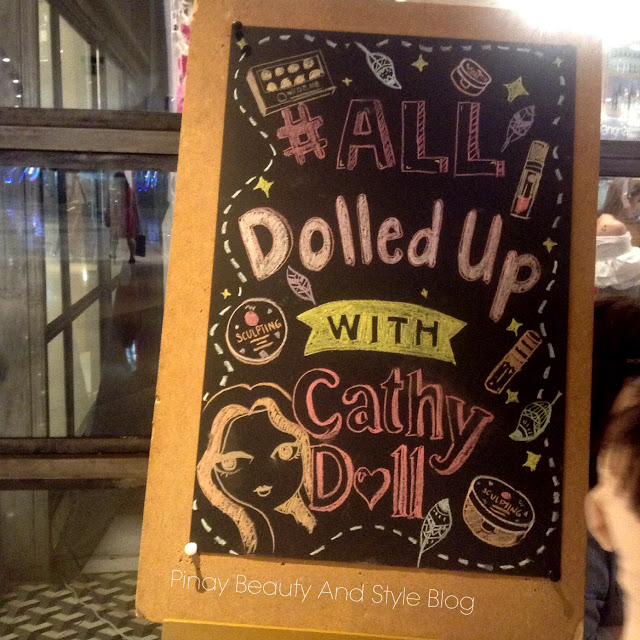 #ALL
Dolled Up
SCULPTING
WITH
Cathy
Doll
SCULPTING
Pinay Beauty And Style Blog